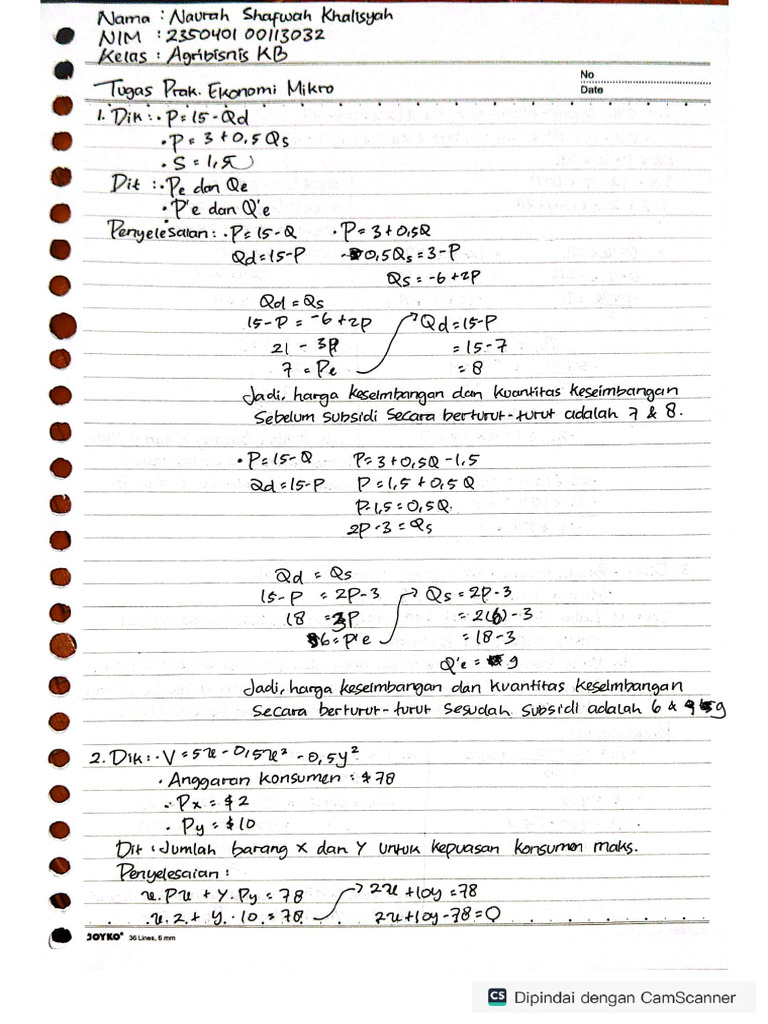 Nama : Naurah Shafwah Khalisyah
NIM : 2350401 00113032
Kelas : Agribisnis KB
Tugas Prak. Ekonomi Mikro
No
Date
1. Dik : • P = 15 - Qd
• P = 3 + 0,5 Qs
• S = 1,5
Dit : • Pe dan Qe
• P'e dan Q'e
Penyelesaian : • P = 15 - Q • P = 3 + 0,5Q
Qd = 15-P -0,5Qs = 3-P
Qs = -6 + 2P
Qd = Qs
15-P = -6 + 2P Qd = 15-P
21 - 3P = 15 - 7
7 = Pe = 8
Jadi, harga keseimbangan dan kuantitas keseimbangan
Sebelum subsidi secara berturut-turut adalah 7 & 8.
• P = 15 - Q P = 3 + 0,5Q - 1,5
Qd = 15-P P = 1,5 + 0,5 Q
P-1,5 = 0,5Q.
2P - 3 = Qs
Qd = Qs
15 - P = 2P - 3 Qs = 2P - 3
18 = 3P = 2(6) - 3
6 = P'e = 18 - 3
Q'e = 9
Jadi, harga keseimbangan dan kuantitas keseimbangan
Secara berturut-turut sesudah subsidi adalah 6 & 9
2. Dik : • V = 5x - 0,5x² - 0,5y²
• Anggaran konsumen : $ 78
• Px = $ 2
• Py = $ 10
Dit : Jumlah barang x dan y untuk kepuasan konsumen maks.
Penyelesaian :
x. Px + y. Py = 78 2x + 10y = 78
x. 2 + y. 10 = 78 2x + 10y - 78 = 0
JOYKO® 36 Lines, 6 mm
CS Dipindai dengan CamScanner